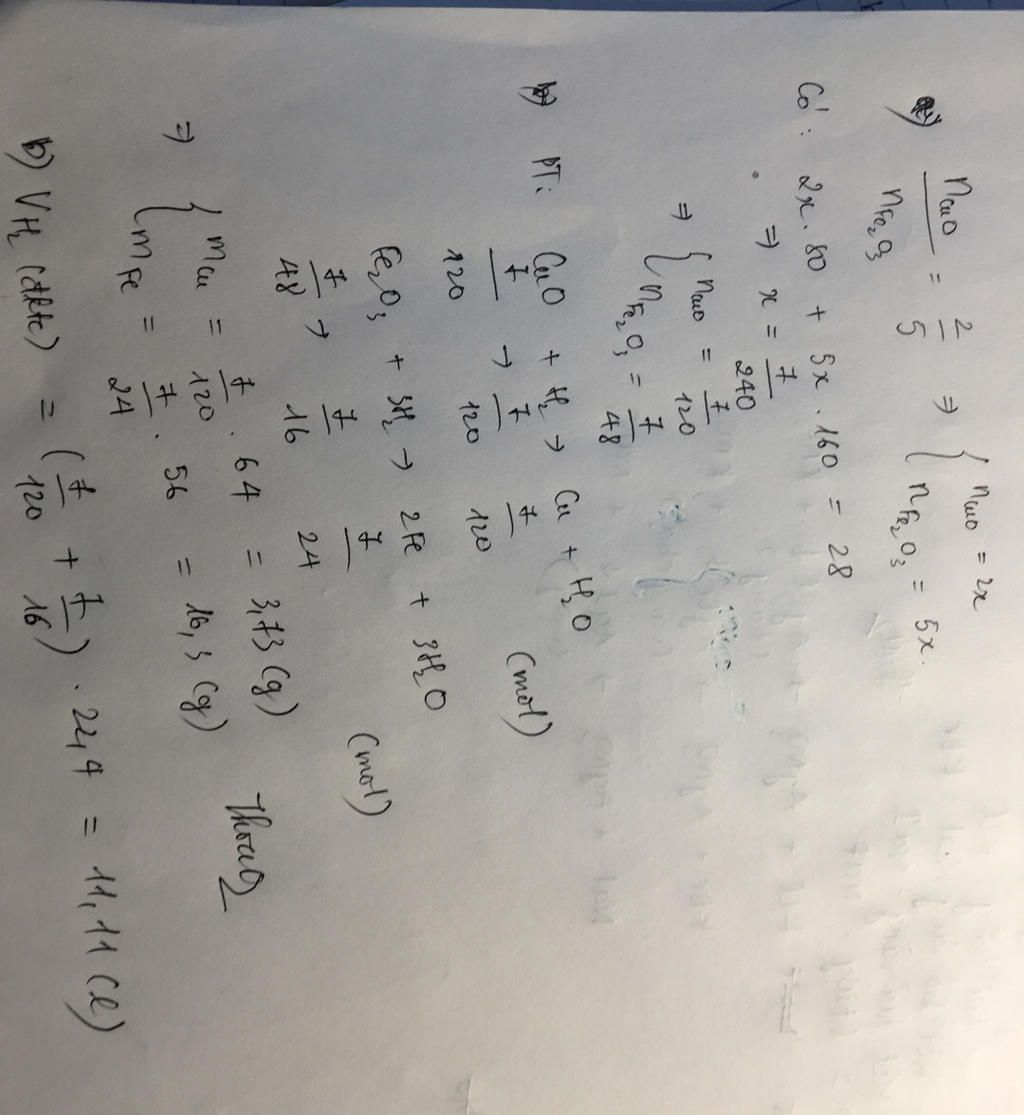 a) nCuO / nFe2O3 = 2/5 ⇒ { nCuO = 2x
nFe2O3 = 5x.
Có: 2x. 80 + 5x. 160 = 28
⇒ x = 7/240
⇒ { nCuO = 7/120
nFe2O3 = 7/48
PT: CuO + H2 → Cu + H2O
7/120 → 7/120 7/120 (mol)
Fe2O3 + 3H2 → 2Fe + 3H2O
7/48 → 7/16 7/24 (mol)
⇒ { mCu = 7/120 . 64 = 3,73 (g)
mFe = 7/24 . 56 = 16,3 (g)
b) VH2 (đktc) = (7/120 + 7/16) . 22,4 = 11,11 (l)